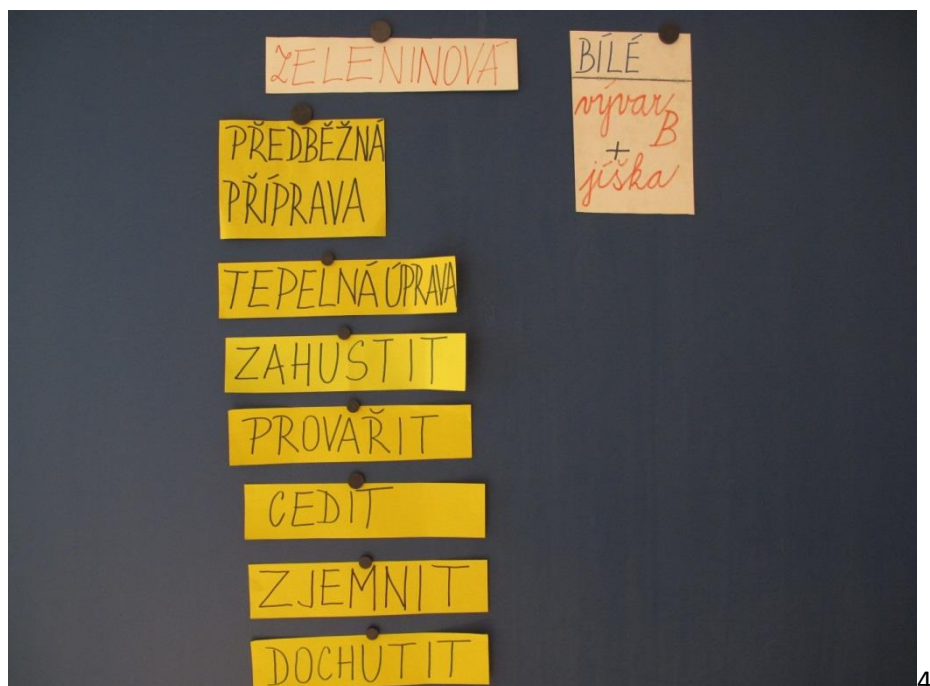 ZELENINOVÁ
PŘEDBĚŽNÁ
PŘÍPRAVA
TEPELNÁ ÚPRAVA
ZAHUSTIT
PROVAŘIT
CEDIT
ZJEMNIT
DOCHUTIT
BÍLÉ
vývar B
+
jíška
4